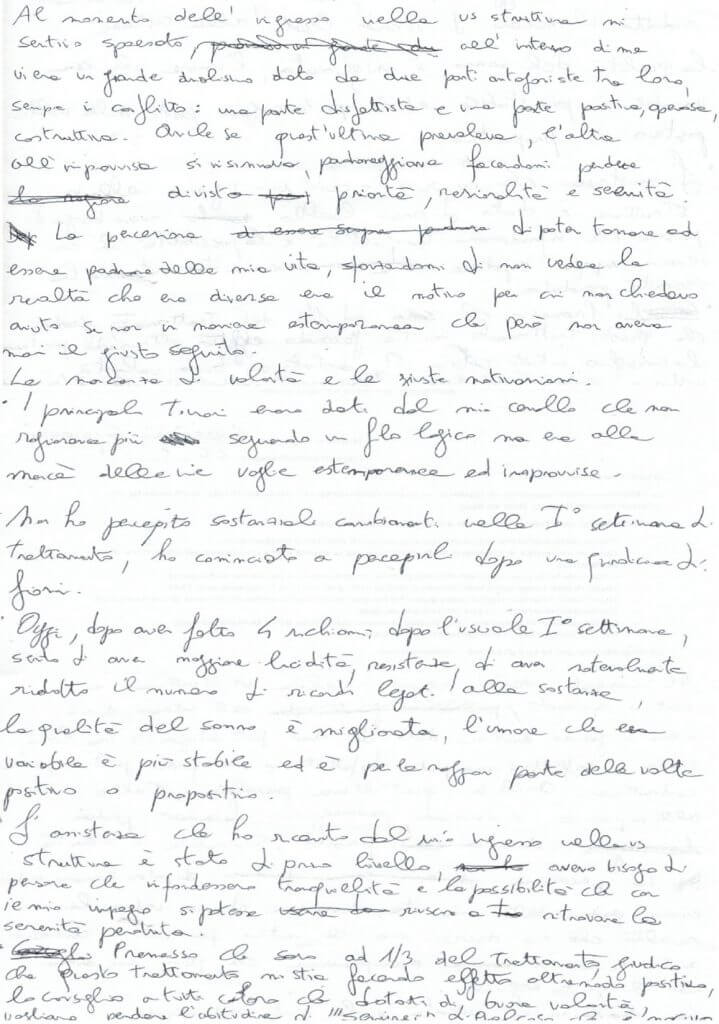 Al momento dell'ingresso nella vs struttura mi
sentivo spaesato, all'interno di me
vi era un grande dualismo dato da due parti antagoniste tra loro,
sempre i conflitto: una parte disfattista e una parte positiva, operosa,
costruttiva. Anche se quest'ultima prevaleva, l'altra
all'improvviso si risinuava, padroneggiava facendomi perdere
di vista priorità, razionalità e serenità.
La percezione di poter tornare ad
essere padrone della mia vita, sforzandomi di non vedere la
realtà che era diversa era il motivo per cui non chiedevo
aiuto se non in maniera estemporanea che però non aveva
mai il giusto seguito.
La mancanza di volontà e le giuste motivazioni.
I principali timori erano dati dal mio cervello che non
ragionava più seguendo un filo logico ma era alla
mercè delle mie voglie estemporanee ed improvvise.
Non ho percepito sostanziali cambiamenti nella I° settimana di
trattamento, ho cominciato a percepirli dopo una quindicina di
giorni.
Oggi, dopo aver fatto 4 richiami, dopo l'usuale I° settimana,
sento di aver maggiore lucidità, resistenza, di aver notevolmente
ridotto il numero di ricordi legati alla sostanza,
la qualità del sonno è migliorata, l'umore che era
variabile è più stabile ed è per la maggior parte delle volte
positivo o propositivo.
L'assistenza che ho ricevuto dal mio ingresso nella vs
struttura è stata di primo livello, avevo bisogno di
persone che infondessero tranquillità e la possibilità che con
il mio impegno si potesse riuscire a ritrovare la
serenità perduta.
Premesso che sono ad 1/3 del trattamento, giudico
che questo trattamento mi stia facendo effetto oltremodo positivo,
lo consiglio a tutti coloro che dotati di buona volontà
vogliano perdere l'abitudine di